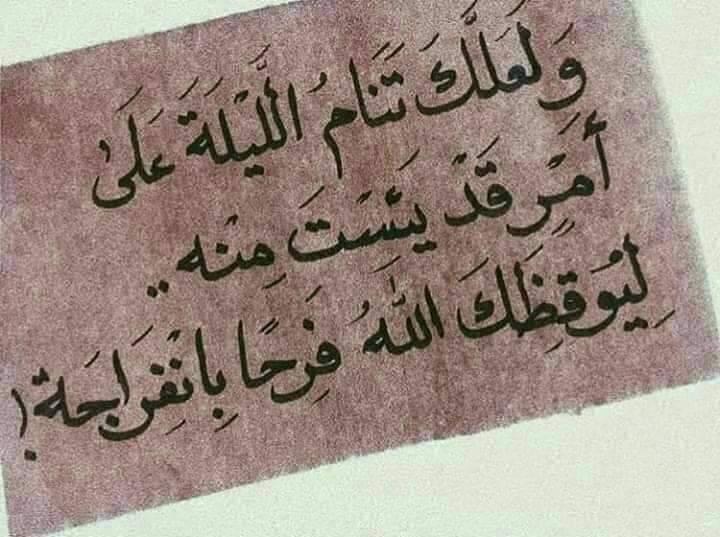 وَلَعَلَّكَ تَنَامُ اللَّيْلَةَ عَلَى
أَمْرٍ قَدْ يَئِسْتَ مِنْه ..
لِيُوقِظَكَ اللهُ فَرِحًا بِانْفِرَاجَة!